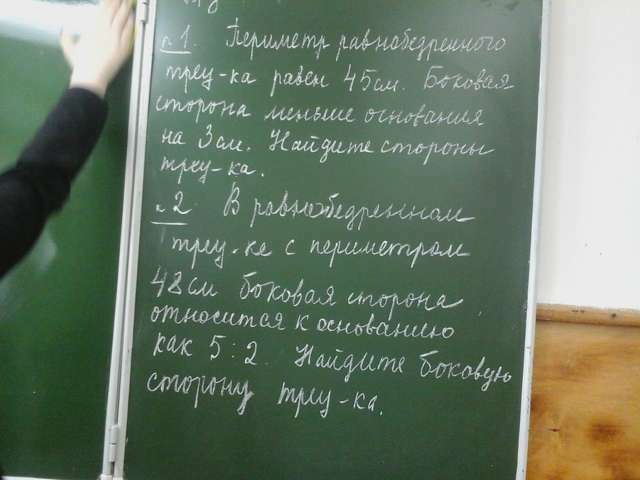 №1. Периметр равнобедренного
треу-ка равен 45 см. Боковая
сторона меньше основания
на 3 см. Найдите стороны
треу-ка.
№2 В равнобедренном
треу-ке с периметром
48 см боковая сторона
относится к основанию
как 5 : 2. Найдите боковую
сторону треу-ка.